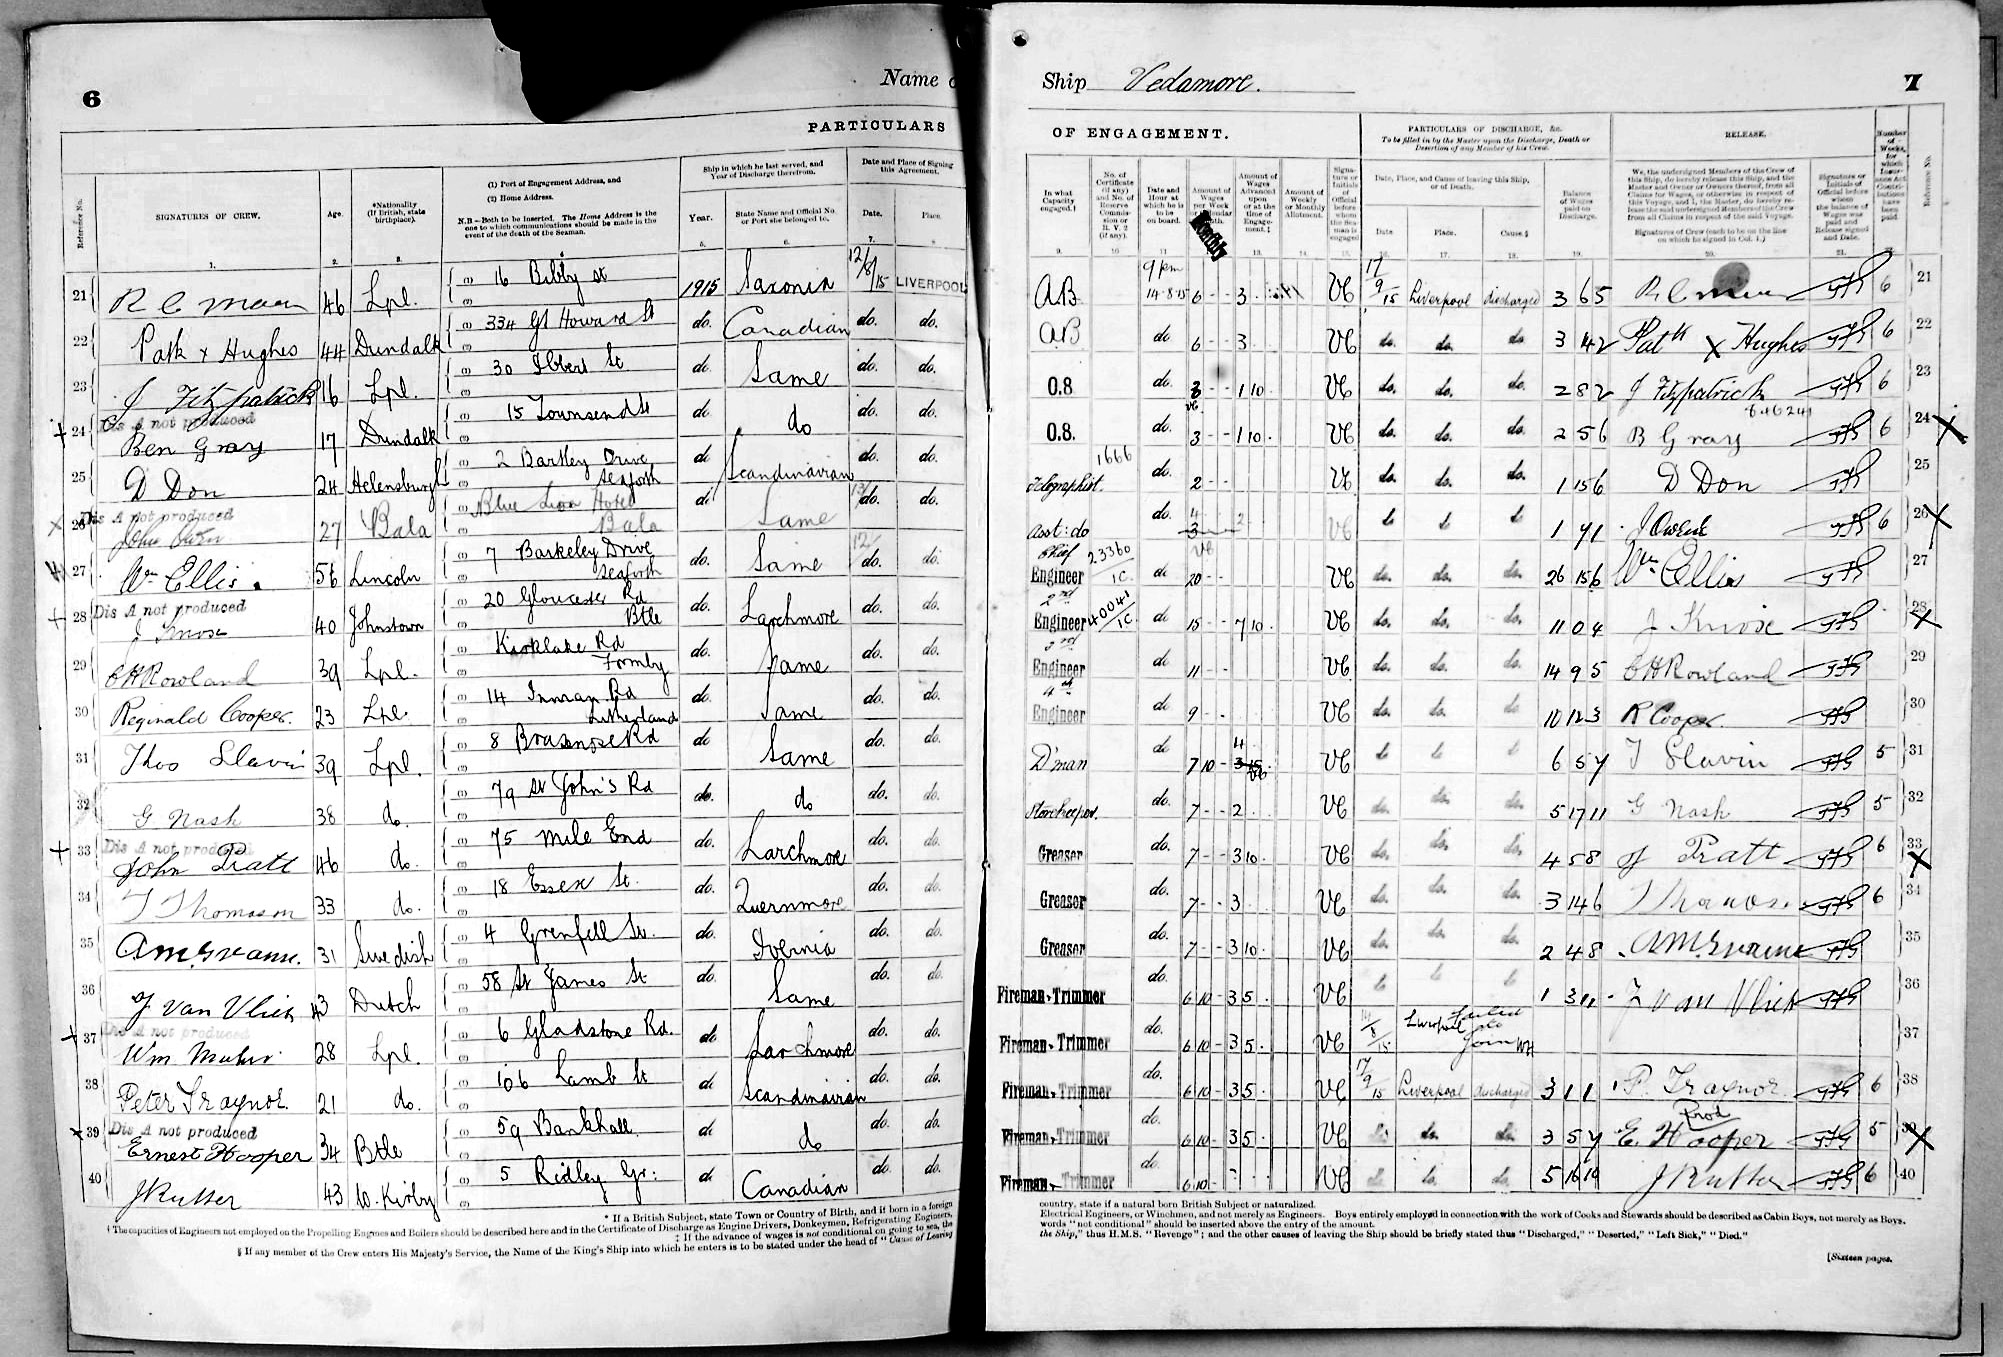 6
Name o
PARTICULARS
Reference No.
SIGNATURES OF CREW.
Age.
*Nationality
(If British, state
birthplace).
(1) Port of Engagement Address, and
(2) Home Address.
N.B.—Both to be inserted. The Home Address is the
one to which communications should be made in the
event of the death of the Seaman.
Ship in which he last served, and
Year of Discharge therefrom.
Year.
State Name and Official No.
or Port she belonged to.
Date and Place of Signing
this Agreement.
Date.
Place.
1. 2. 3. 5. 6. 7. 8.
21 46 Lpl. 16 Bibby st 1915 Saxonia 12/8/15 LIVERPOOL
22 Patk x Hughes 44 Dundalk 334 Gt Howard St do. Canadian do. do.
23 J Fitzpatrick 16 Lpl. 30 St do Same do. do.
Dis A not produced
+ 24 Ben Gray 17 Dundalk 15 Townsend St do do do. do.
25 D Don 24 Helensburgh 2 Bartley Drive Seaforth do Scandinavian do. do.
Dis A not produced
x 26 John Owen 27 Bala Blue Lion Hotel Bala do Same 13 do. do.
27 Wm Ellis. 56 Lincoln 7 Barkeley Drive Seaforth do. Same 12 do. do.
Dis A not produced
+ 28 J Knose 40 Johnstown 20 Gloucester Rd Btle do. Larchmore do. do.
29 C H Rowland 39 Lpl. Kirklake Rd Formby do. Same do. do.
30 Reginald Cooper. 23 Lpl. 14 Inman Rd Litherland do. Same do. do.
31 Thos Slavin 39 Lpl. 8 Brasenose Rd do Same do. do.
32 G. Nash 38 do. 79 St John's Rd do. do do. do.
Dis A not produced
+ 33 John Pratt 46 do. 75 Mile End do. Larchmore do. do.
34 T Thomason 33 do. 18 Essex St. do. Quernmore do. do.
35 31 Swedish 4 Grenfell St. do. Ivernia do. do.
36 J Van Vliet 43 Dutch 58 St James St do. Same do. do.
Dis A not produced
+ 37 Wm. 28 Lpl. 6 Gladstone Rd. do. Larchmore do. do.
38 Peter Traynor. 21 do. 106 Lamb St do Scandinavian do. do.
Dis A not produced
x 39 Ernest Hooper 34 Btle 59 Bankhall do do do. do.
40 J Rutter 43 W. Kirby 5 Ridley Gr: do Canadian do. do.
* If a British Subject, state Town or Country of Birth, and if born in a foreign
† The capacities of Engineers not employed on the Propelling Engines and Boilers should be described here and in the Certificate of Discharge as Engine Drivers, Donkeymen, Refrigerating Engineers,
‡ If the advance of wages is not conditional on going to sea, the
§ If any member of the Crew enters His Majesty's Service, the Name of the King's Ship into which he enters is to be stated under the head of "Cause of Leaving
Ship Vedamore.
7
OF ENGAGEMENT.
PARTICULARS OF DISCHARGE, &c.
To be filled in by the Master upon the Discharge, Death or
Desertion of any Member of his Crew.
RELEASE.
Number of Weeks, for which Insurance Act Contributions have been paid.
Reference No.
In what
Capacity
engaged.†
No. of
Certificate
(if any)
and No. of
Reserve
Commission
or
R. V. 2
(if any).
Date and
Hour at
which he is
to be
on board.
Amount of
Wages
per Week
Calendar
Month.
Monthly
Amount of
Wages
Advanced
upon
or at the
time of
Engagement.‡
Amount of
Weekly
or Monthly
Allotment.
Signature or
Initials
of
Official
before
whom
the Seaman is
engaged
Date, Place, and Cause of leaving this Ship,
or of Death.
Date
Place.
Cause.§
Balance
of Wages
paid on
Discharge.
We, the undersigned Members of the Crew of
this Ship, do hereby release this Ship, and the
Master and Owner or Owners thereof, from all
Claims for Wages, or otherwise in respect of
this Voyage, and I, the Master, do hereby release the undersigned Members of the Crew
from all Claims in respect of the said Voyage.
Signatures of Crew (each to be on the line
on which he signed in Col. 1.)
Signature or
Initials of
Official before
whom
the balance of
Wages was
paid and
Release signed
and Date.
AB 9 pm 14-8-15 6 - - 3 VC 17/9/15 Liverpool discharged 3 6 5 6 21
AB do 6 - - 3 VC do. do. do 3 4 2 Patk X Hughes 6 22
O.S do. 3 - - 1 10 VC do. do. do. 2 8 2 J Fitzpatrick 6 23
846241
O.S. do. 3 - - 1 10 VC do. do. do. 2 5 6 B Gray 6 24 X
Telegraphist. 1666 do. 2 - - VC do. do. do. 1 15 6 D Don 25
Asst: do do. 4 3 2 VC 1 7 1 J Owen 6 26 X
Chief Engineer 23360/1C do 20 - - VC do. do. do. 26 15 6 Wm Ellis 27
2nd Engineer 40041/1C do 15 - - 7 10 VC do. do. do. 11 0 4 J Knose 28 X
3rd Engineer do 11 - - VC do. do. do. 14 9 5 C H Rowland 29
4th Engineer do 9 - - VC do. do. do. 10 12 3 R Cooper 30
D'man do 7 10 - 4 3 15 VC 6 5 7 T Slavin 5 31
Storekeeper. do. 7 - - 2 VC do. do. do. 5 17 11 G Nash 5 32
Greaser do. 7 - - 3 10 VC do. do. do. 4 5 8 J Pratt 6 33 X
Greaser do. 7 - - 3 VC do. do. do. 3 14 6 6 34
Greaser do. 7 - - 3 10 VC do. do. do. 2 4 8 35
Fireman & Trimmer do. 6 10 - 3 5 VC 1 3 11 J Van Vliet 36
Fireman & Trimmer do. 6 10 - 3 5 VC 14/8/15 Liverpool failed to join 37
Fireman & Trimmer do. 6 10 - 3 5 VC 17/9/15 Liverpool discharged 3 1 1 P. Traynor 6 38
Fireman & Trimmer do. 6 10 - 3 5 VC do. do. do. 3 5 7 E. Hooper Prod 5 39 X
Fireman & Trimmer do. 6 10 - VC do. do. do. 5 16 10 J Rutter 6 40
country, state if a natural born British Subject or naturalized.
Electrical Engineers, or Winchmen, and not merely as Engineers. Boys entirely employed in connection with the work of Cooks and Stewards should be described as Cabin Boys, not merely as Boys.
words "not conditional" should be inserted above the entry of the amount.
the Ship," thus H.M.S. "Revenge"; and the other causes of leaving the Ship should be briefly stated thus "Discharged," "Deserted," "Left Sick," "Died."
[Sixteen pages.